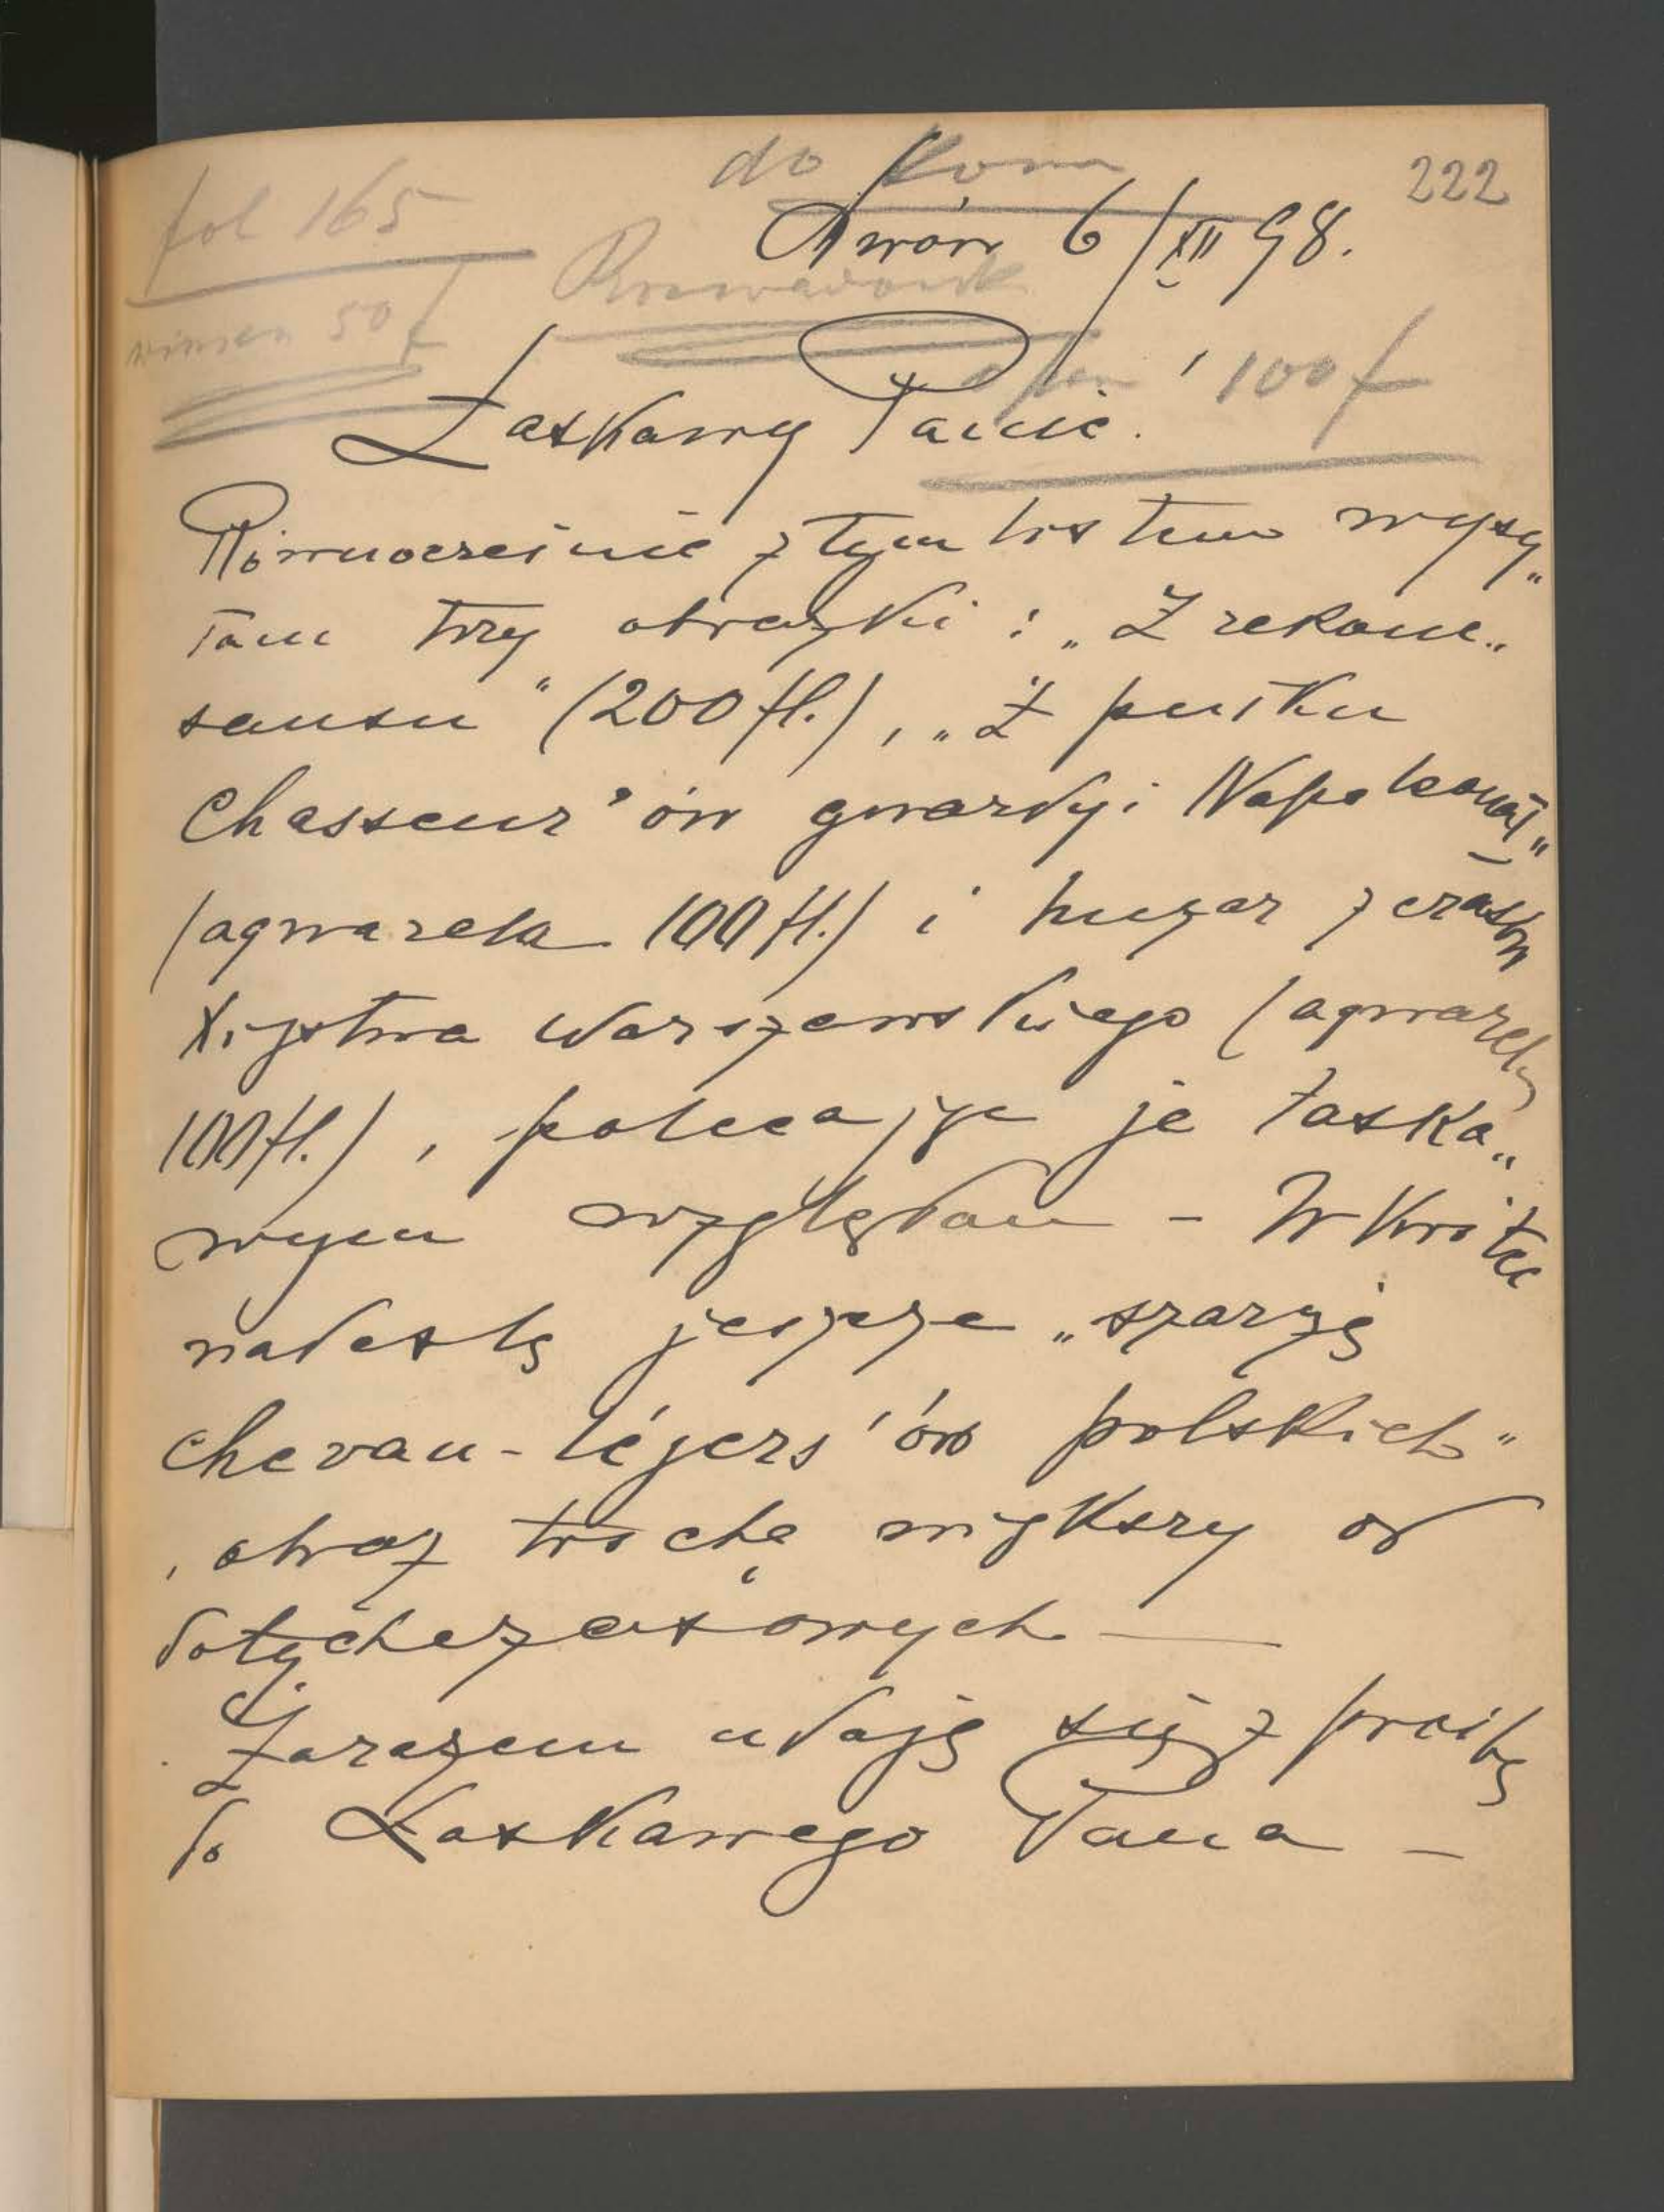 do Kom
222
fol 165
Lwów 6/XII 98.
winien 50 f
100 f
Łaskawy Panie.
Równocześnie z tym listem wysy„
łam trzy obrazki: „Z rekone„
sansu" (200 fl.), „Z pułku
Chasseur'ów gwardyi Napoleona I"
(aqwarela 100 fl.) i huzar z czasów
Xięstwa Warszawskiego (aqwarela
100 fl.), polecając je łaska„
wym względom – Wkrótce
nadeszlę jeszcze „szarżę
chevau-légers'ów polskich"
, obraz trochę większy od
dotychczasowych —
Zarazem udaję się z prośbą
do Łaskawego Pana –